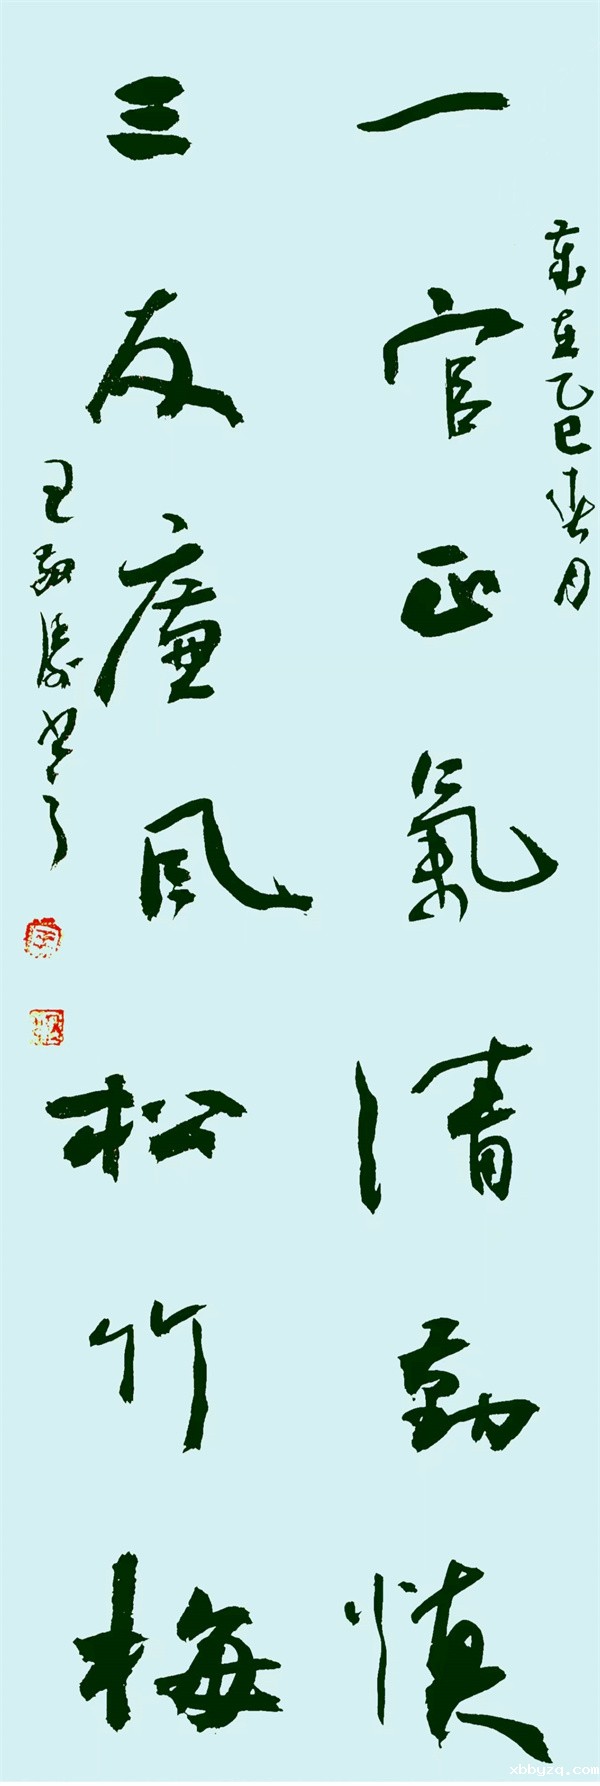 歲在乙巳春月
一官正氣清勤慎
三友廉風松竹梅
王敬 書
xbbyzq.com